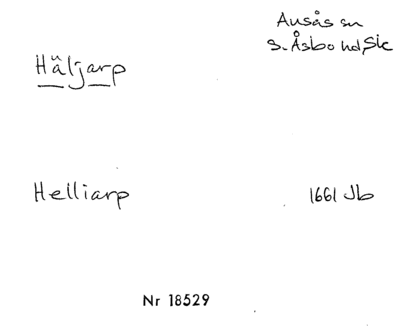 Ausås sn
S. Åsbo hd, Sk
Häljarp
Helliarp
1661 Jb
Nr 18529